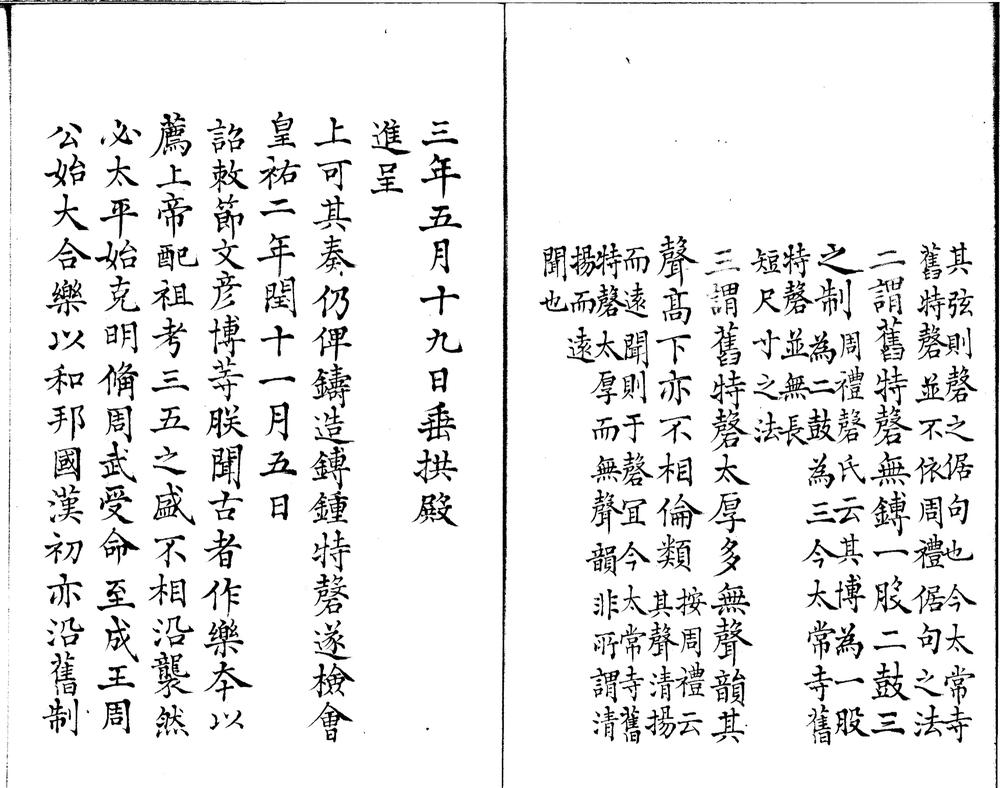 其弦則磬之倨句也今太常寺
舊特磬並不依周禮倨句之法
二謂舊特磬無鏄一股二鼓三
之制周禮磬氏云其博為一股
為二鼓為三今太常寺舊
特磬並無長
短尺寸之法
三謂舊特磬太厚多無聲韻其
聲高下亦不相倫類按周禮云
其聲清揚
而遠聞則于磬冝今太常寺舊
特磬太厚而無聲韻非所謂清
揚而遠
聞也
三年五月十九日垂拱殿
進呈
上可其奏仍俾鑄造鏄鍾特磬遂檢會
皇祐二年閏十一月五日
詔敕節文彦博等朕聞古者作樂夲以
薦上帝配祖考三五之盛不相沿襲然
必太平始克明俻周武受命至成王周
公始大合樂以和邦國漢初亦沿舊制